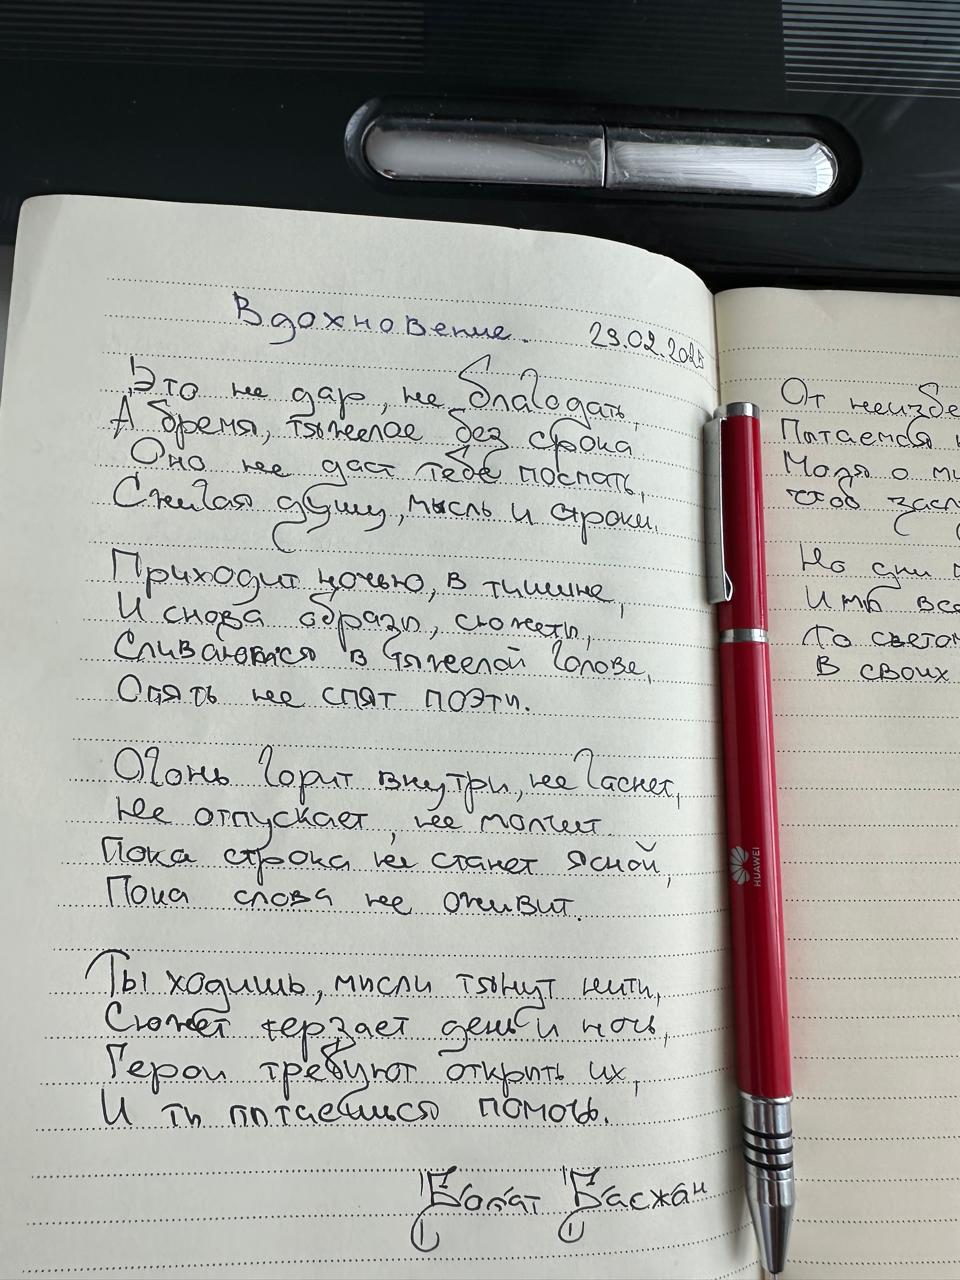 Вдохновение.
23.02.2025
Это не дар, не благодать,
А бремя, тяжелое без срока
Оно не даст тебе поспать,
Сжигая душу, мысль и строки.
Приходит ночью, в тишине,
И снова образы, сюжеты,
Сливаются в тяжелой голове,
Опять не спят поэты.
Огонь горит внутри, не гаснет,
Не отпускает, не молчит.
Пока строка не станет ясной,
Пока слова не оживит.
Ты ходишь, мысли тянут нити,
Сюжет терзает день и ночь,
Герои требуют открыть их,
И ты пытаешься помочь.
Болат Басжан
От
Пытаемся
Моля о
чтоб
Но дни
В своих
HUAWEI